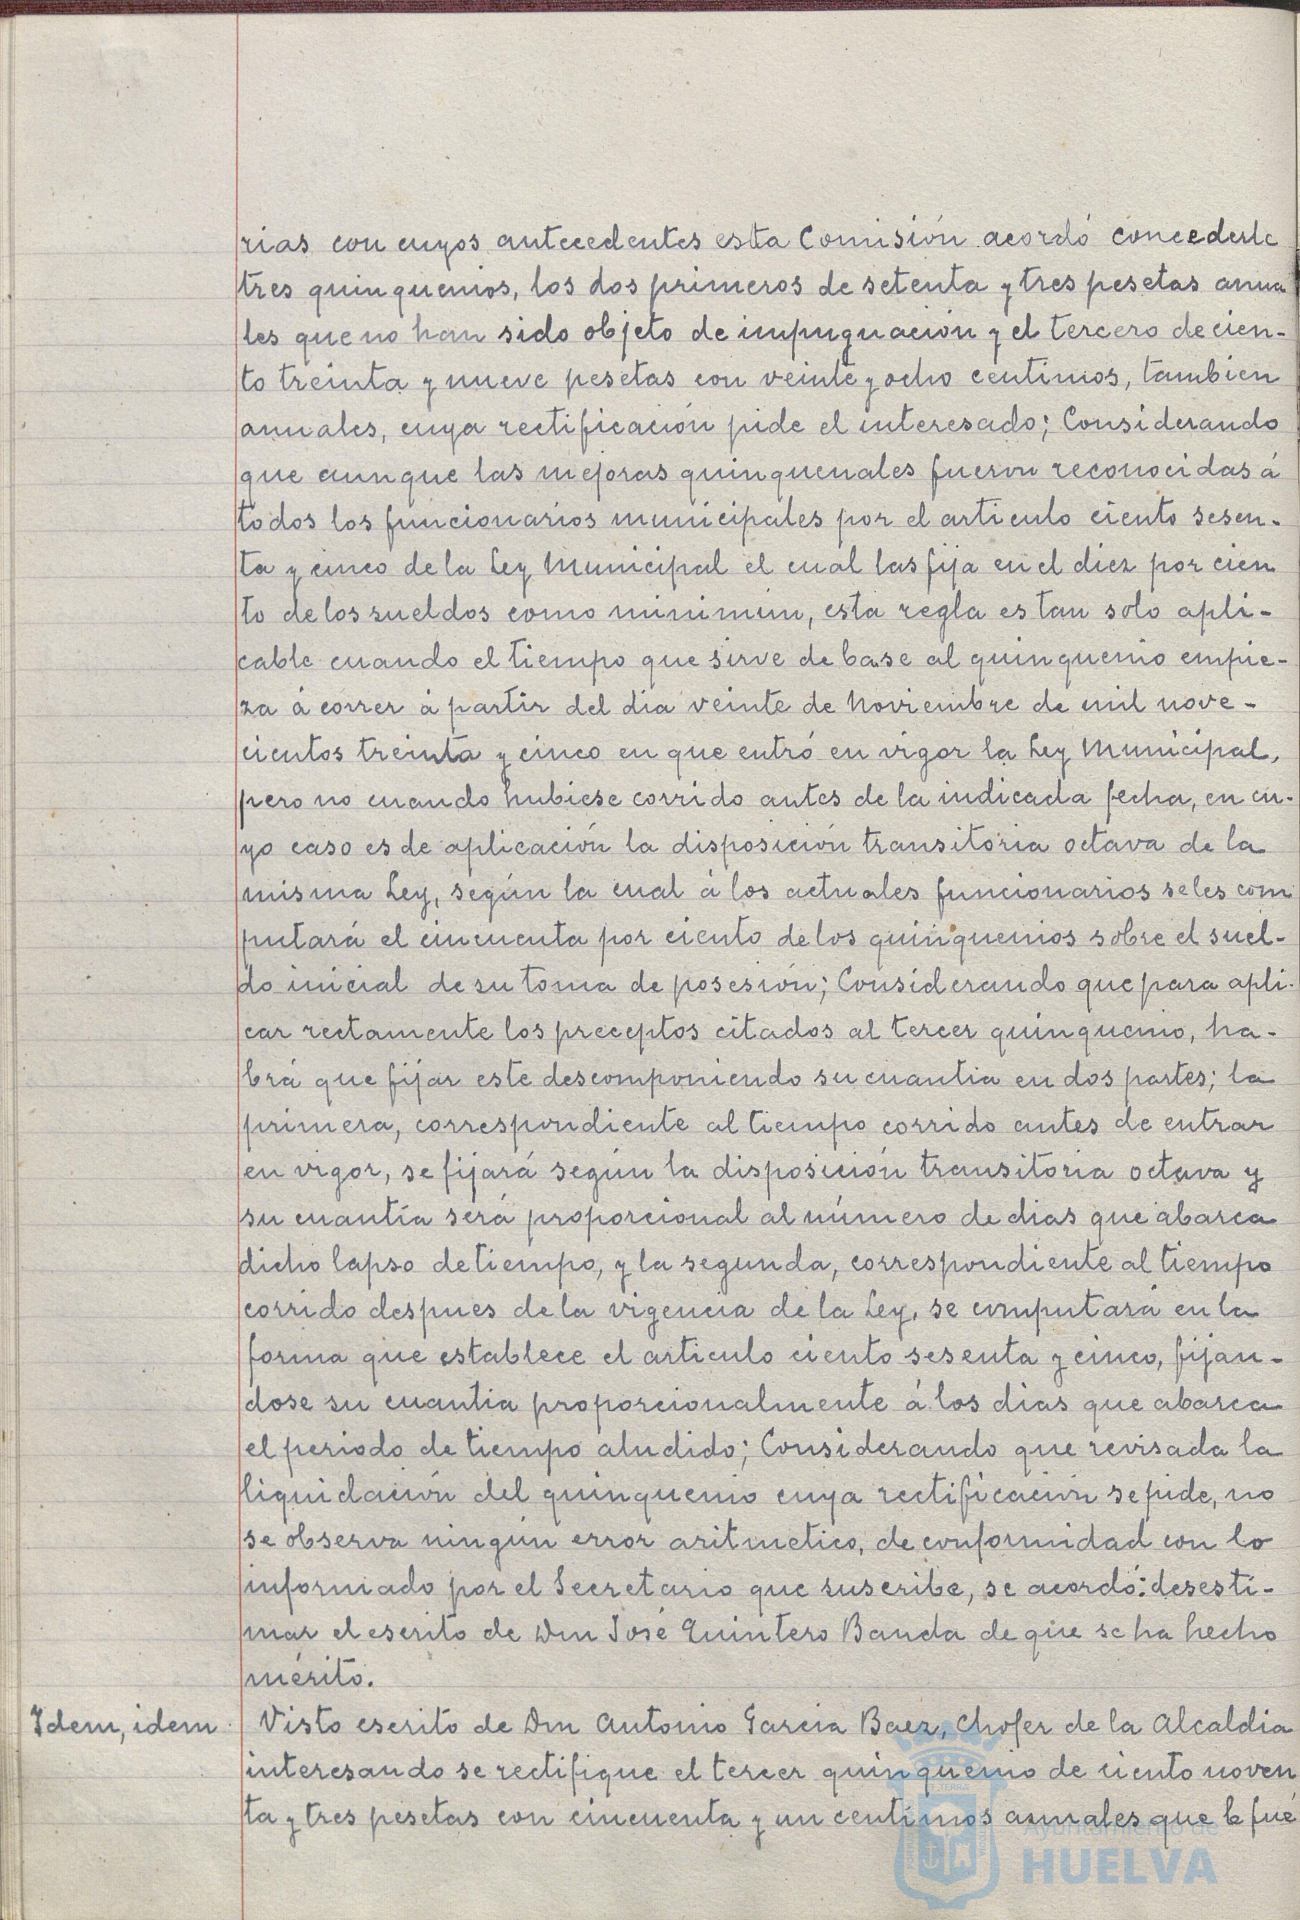 rias con cuyos antecedentes esta Comisión acordó concederle
tres quinquenios, los dos primeros de setenta y tres pesetas anua
les que no han sido objeto de impugnación y el tercero de cien-
to treinta y nueve pesetas con veinte y ocho centimos, tambien
anuales, cuya rectificación pide el interesado; Considerando
que aunque las mejoras quinquenales fueron reconocidas á
todos los funcionarios municipales por el articulo ciento sesen-
ta y cinco de la Ley Municipal el cual las fija en el diez por cien
to de los sueldos como minimún, esta regla es tan solo apli-
cable cuando el tiempo que sirve de base al quinquenio empie-
za á correr á partir del dia veinte de Noviembre de mil nove-
cientos treinta y cinco en que entró en vigor la Ley Municipal,
pero no cuando hubiese corrido antes de la indicada fecha, en cu-
yo caso es de aplicación la disposición transitoria octava de la
misma Ley, según la cual á los actuales funcionarios se les com
putará el cincuenta por ciento de los quinquenios sobre el suel-
do inicial de su toma de posesión; Considerando que para apli-
car rectamente los preceptos citados al tercer quinquenio, ha-
brá que fijar este descomponiendo su cuantia en dos partes; la
primera, correspondiente al tiempo corrido antes de entrar
en vigor, se fijará según la disposición transitoria octava y
su cuantía será proporcional al número de dias que abarca
dicho lapso de tiempo, y la segunda, correspondiente al tiempo
corrido despues de la vigencia de la Ley, se computará en la
forma que establece el articulo ciento sesenta y cinco, fijan-
dose su cuantia proporcionalmente á los dias que abarca
el periodo de tiempo aludido; Considerando que revisada la
liquidación del quinquenio cuya rectificación se pide, no
se observa ningún error aritmetico, de conformidad con lo
informado por el Secretario que suscribe, se acordó: desesti-
mar el escrito de Don José Quintero Banda de que se ha hecho
mérito.
Idem, idem. Visto escrito de Don Antonio Garcia Baez, Chofer de la Alcaldia
interesando se rectifique el tercer quinquenio de ciento noven
ta y tres pesetas con cincuenta y un centimos anuales que le fué
Ayuntamiento de
HUELVA